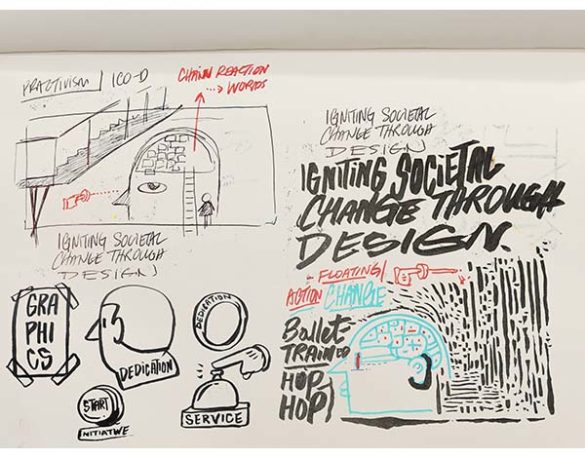 PRACTIVISM | ICO-D
CHAIN REACTION
WORDS
IGNITING SOCIETAL
CHANGE THROUGH
DESIGN
GRA
PHI
CS
DEDICATION
DEDICATION
START
INITIATIVE
SERVICE
IGNITING SOCIETAL
CHANGE THROUGH
DESIGN
IGNITING SOCIETAL
CHANGE THROUGH
DESIGN.
FLOATING/
ACTION CHANGE
TRAIN
HIP
HOP